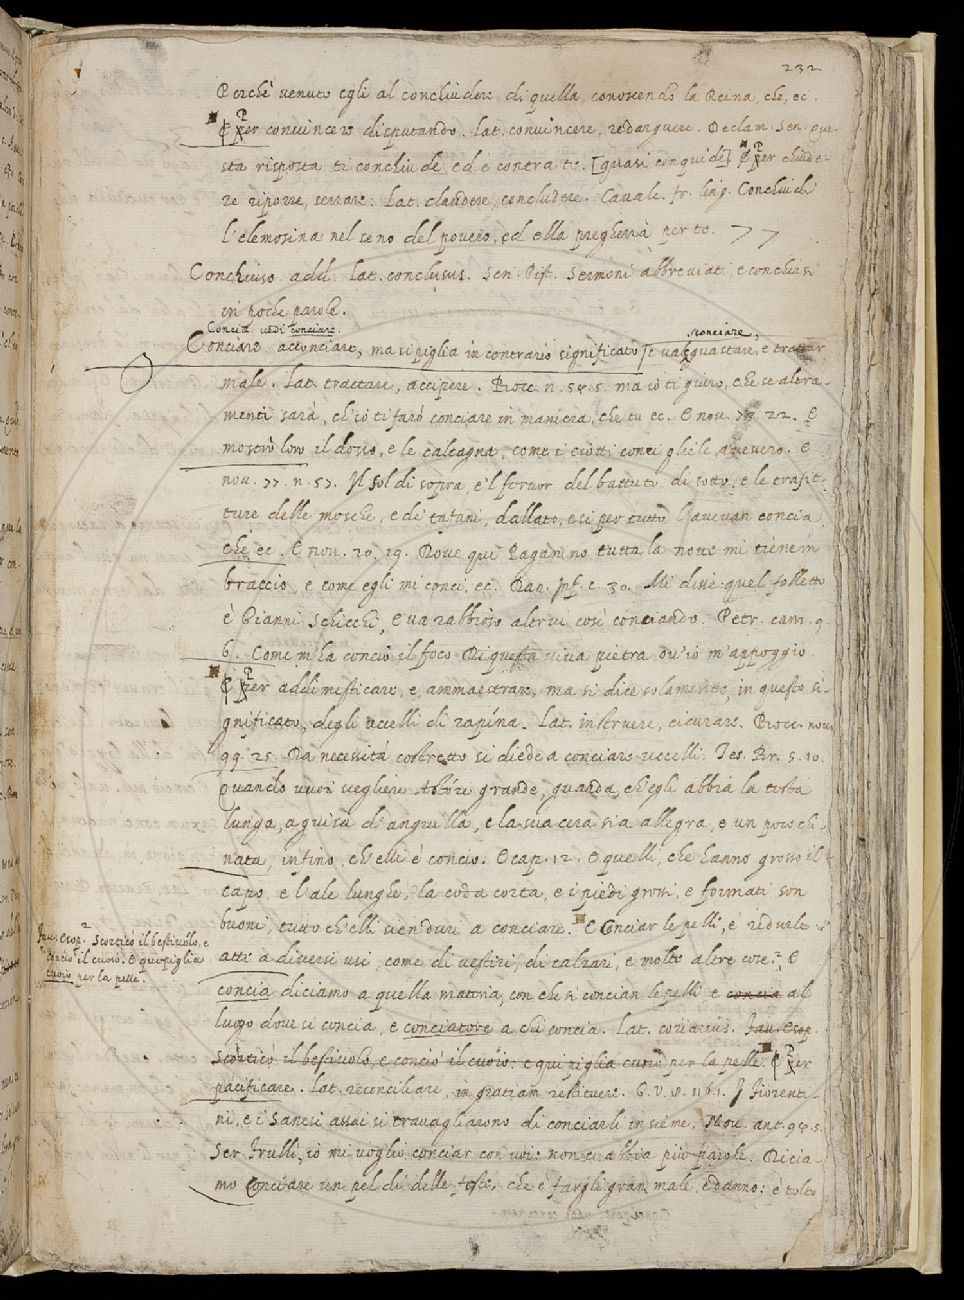 232
Perchè venuto egli al conchiudere di quella, conoscendo la Reina, che, ec.
¶ Per convincere disputando. Lat. convincere, redarguere. Declam. Sen. que-
sta risposta ti conchiude, ed è contra te. [quasi conquide] ¶ Per chiude-
re riporre, serrare. Lat. claudere, concludere. Cavalc. fr. ling. Conchiudi
l'elemosina nel seno del povero, ed ella pregherrà per te.
Conchiuso add. Lat. conclusus. Sen. Pist. Sermoni abbreviati, e conchiusi
in poche parole.
Concia vedi conciare.
sconciare,
Conciare acconciare, ma si piglia in contrario significato e val guastare, e trattar
male. Lat. tractare, accipere. Bocc. n. 54. 5. ma io ti giuro, che se altra-
menti sarà, ch' io ti farò conciare in maniera, che tu ec. E nov. 73. 22. E
mostrò loro il dosso, e le calcagna, come i ciotti conci gliele avessero. E
nov. 77. n. 57. Il sol di sopra, e 'l fervor del battuto di sotto, e le trafit-
ture delle mosche, e de' tafani, dallato, e si per tutto l'avevan concia
che ec. E nov. 20. 19. Dove qui Paganino tutta la notte mi tiene in
braccio, e come egli mi conci, ec. Dan. Inf. c. 30. Mi disse: quel folletto
è Gianni Schicchi, E va rabbioso altrui così conciando. Petr. canz. 9.
6. Come m'ha concio il foco Di questa viva pietra ov' io m'appoggio
¶ Per addimesticare, e, ammaestrare, ma si dice solamente, in questo si-
gnificato, degli uccelli di rapína. Lat. instruere, cicurare. Bocc. nov.
99. 25. Da necessità costretto si diede a conciare uccelli. Tes. Br. 5. 10.
Quando vuoi scegliere Astóre grande, guarda, ch'egli abbia la testa
lunga, a guisa d'anguilla, e la sua cera sia allegra, e un poco chi-
nata, infino, ch'elli è concio. E cap. 12. E quelli, che hanno grosso il
capo, e l'ale lunghe, la coda corta, e i piedi grossi, e formati son
buoni, tutto ch'elli sien duri a conciare. E Conciar le pelli, è ridurle
atte a diversi usi, come di vestiri, di calzari, e molte altre cose. E
concia diciamo a quella materia, con che si concian le pelli e concia al
luogo dove si concia, e conciatore a chi concia. Lat. coriarius. Fav. Esop.
Scorticò il bestiuolo, e conciò il cuoio: e qui piglia cuoio per la pelle. ¶ Per
pacificare. Lat. reconciliare, in gratiam restituere. G. V. 8. 116. 1. I Fiorenti-
ni, e i Sanesi assai si travagliarono di conciarli insieme. Nov. ant. 94. 5.
Ser Frulli, io mi voglio conciar con voi: non ci abbia più parole. Dicia-
mo Conciare un pel dì delle feste, che è fargli gran male, e danno: è tolto
Fav. Esop. Scorticò il bestiuolo, e
conciò il cuoio. E qui piglia
cuoio per la pelle.